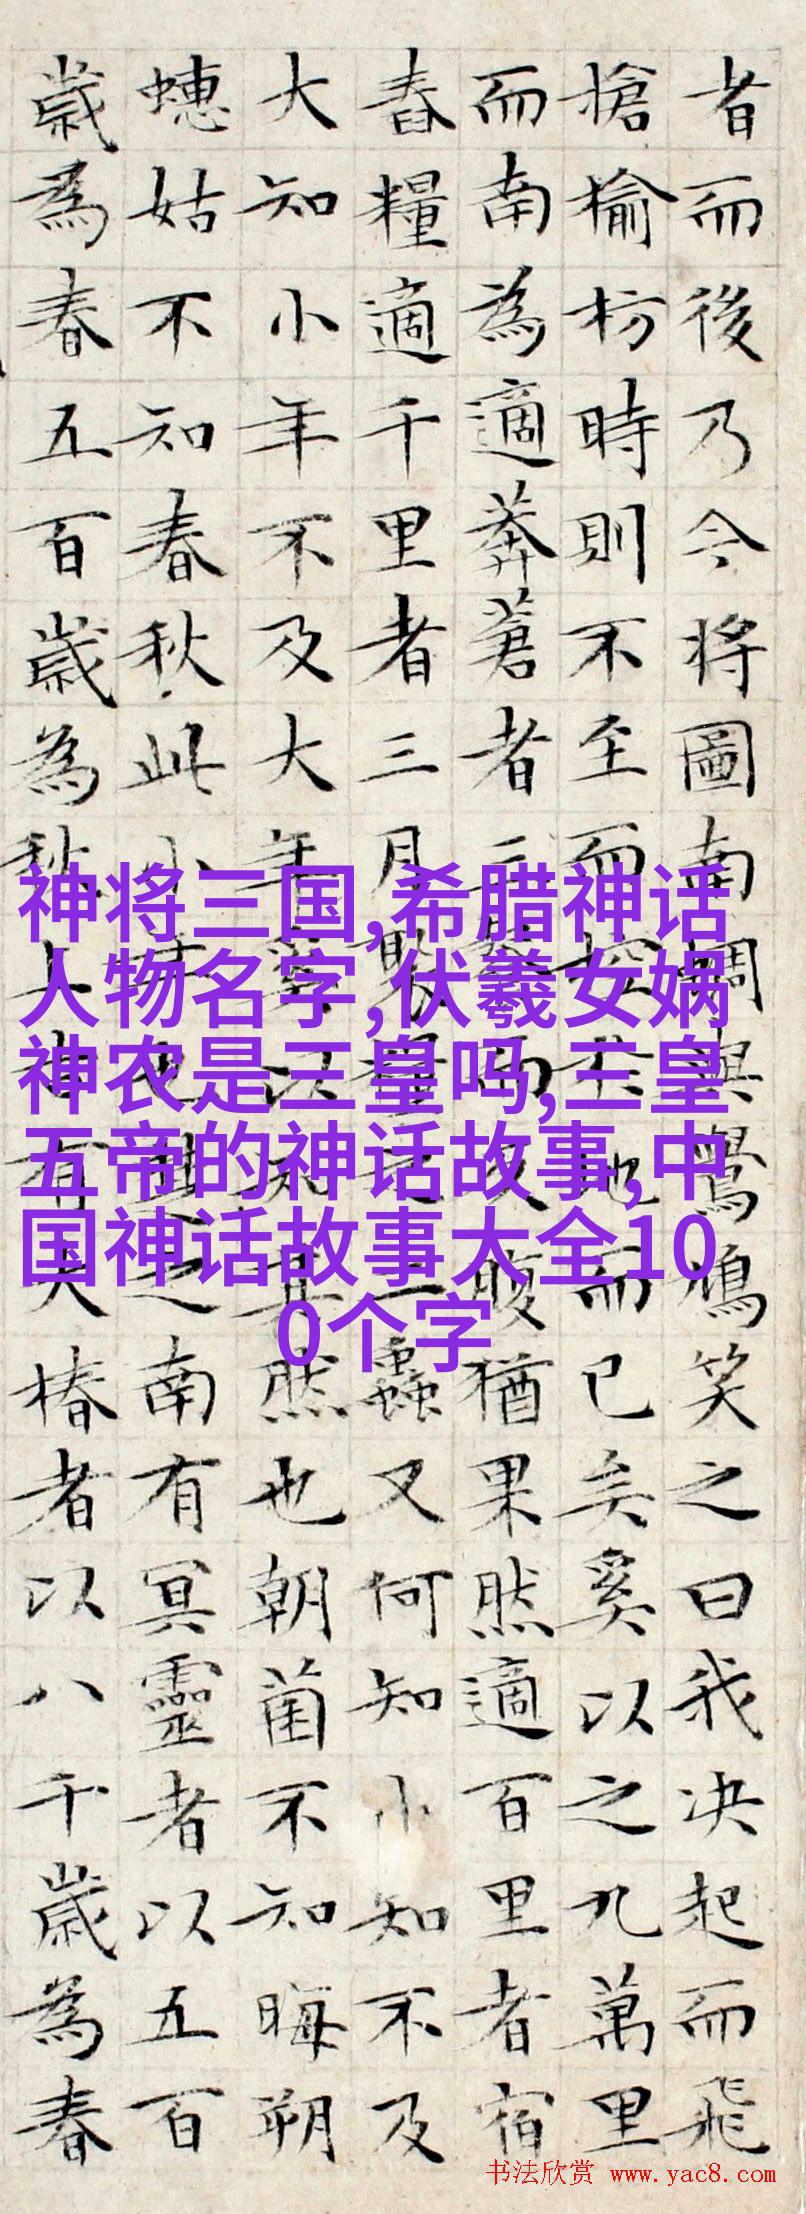 者而後乃今将圖南蜩與鷽鳩笑之曰我决起而飛
搶榆枋時則不至而控於地而已矣奚以之九萬里
而南為適莽蒼者三而反腹猶果然適百里者宿
舂糧適千里者三月聚糧之二蟲又何知小知不及
大知小年不及大年奚以知其然也朝菌不知晦朔
蟪姑不知春秋此小年也楚之南有冥靈者以五百
歲為春五百歲為秋上古有大椿者以八千歲為春
神将三国,希腊神话
人物名字,伏羲女娲
神农是三皇吗,三皇
五帝的神话故事,中
国神话故事大全10
0个字
书法欣赏 www.yac8.com